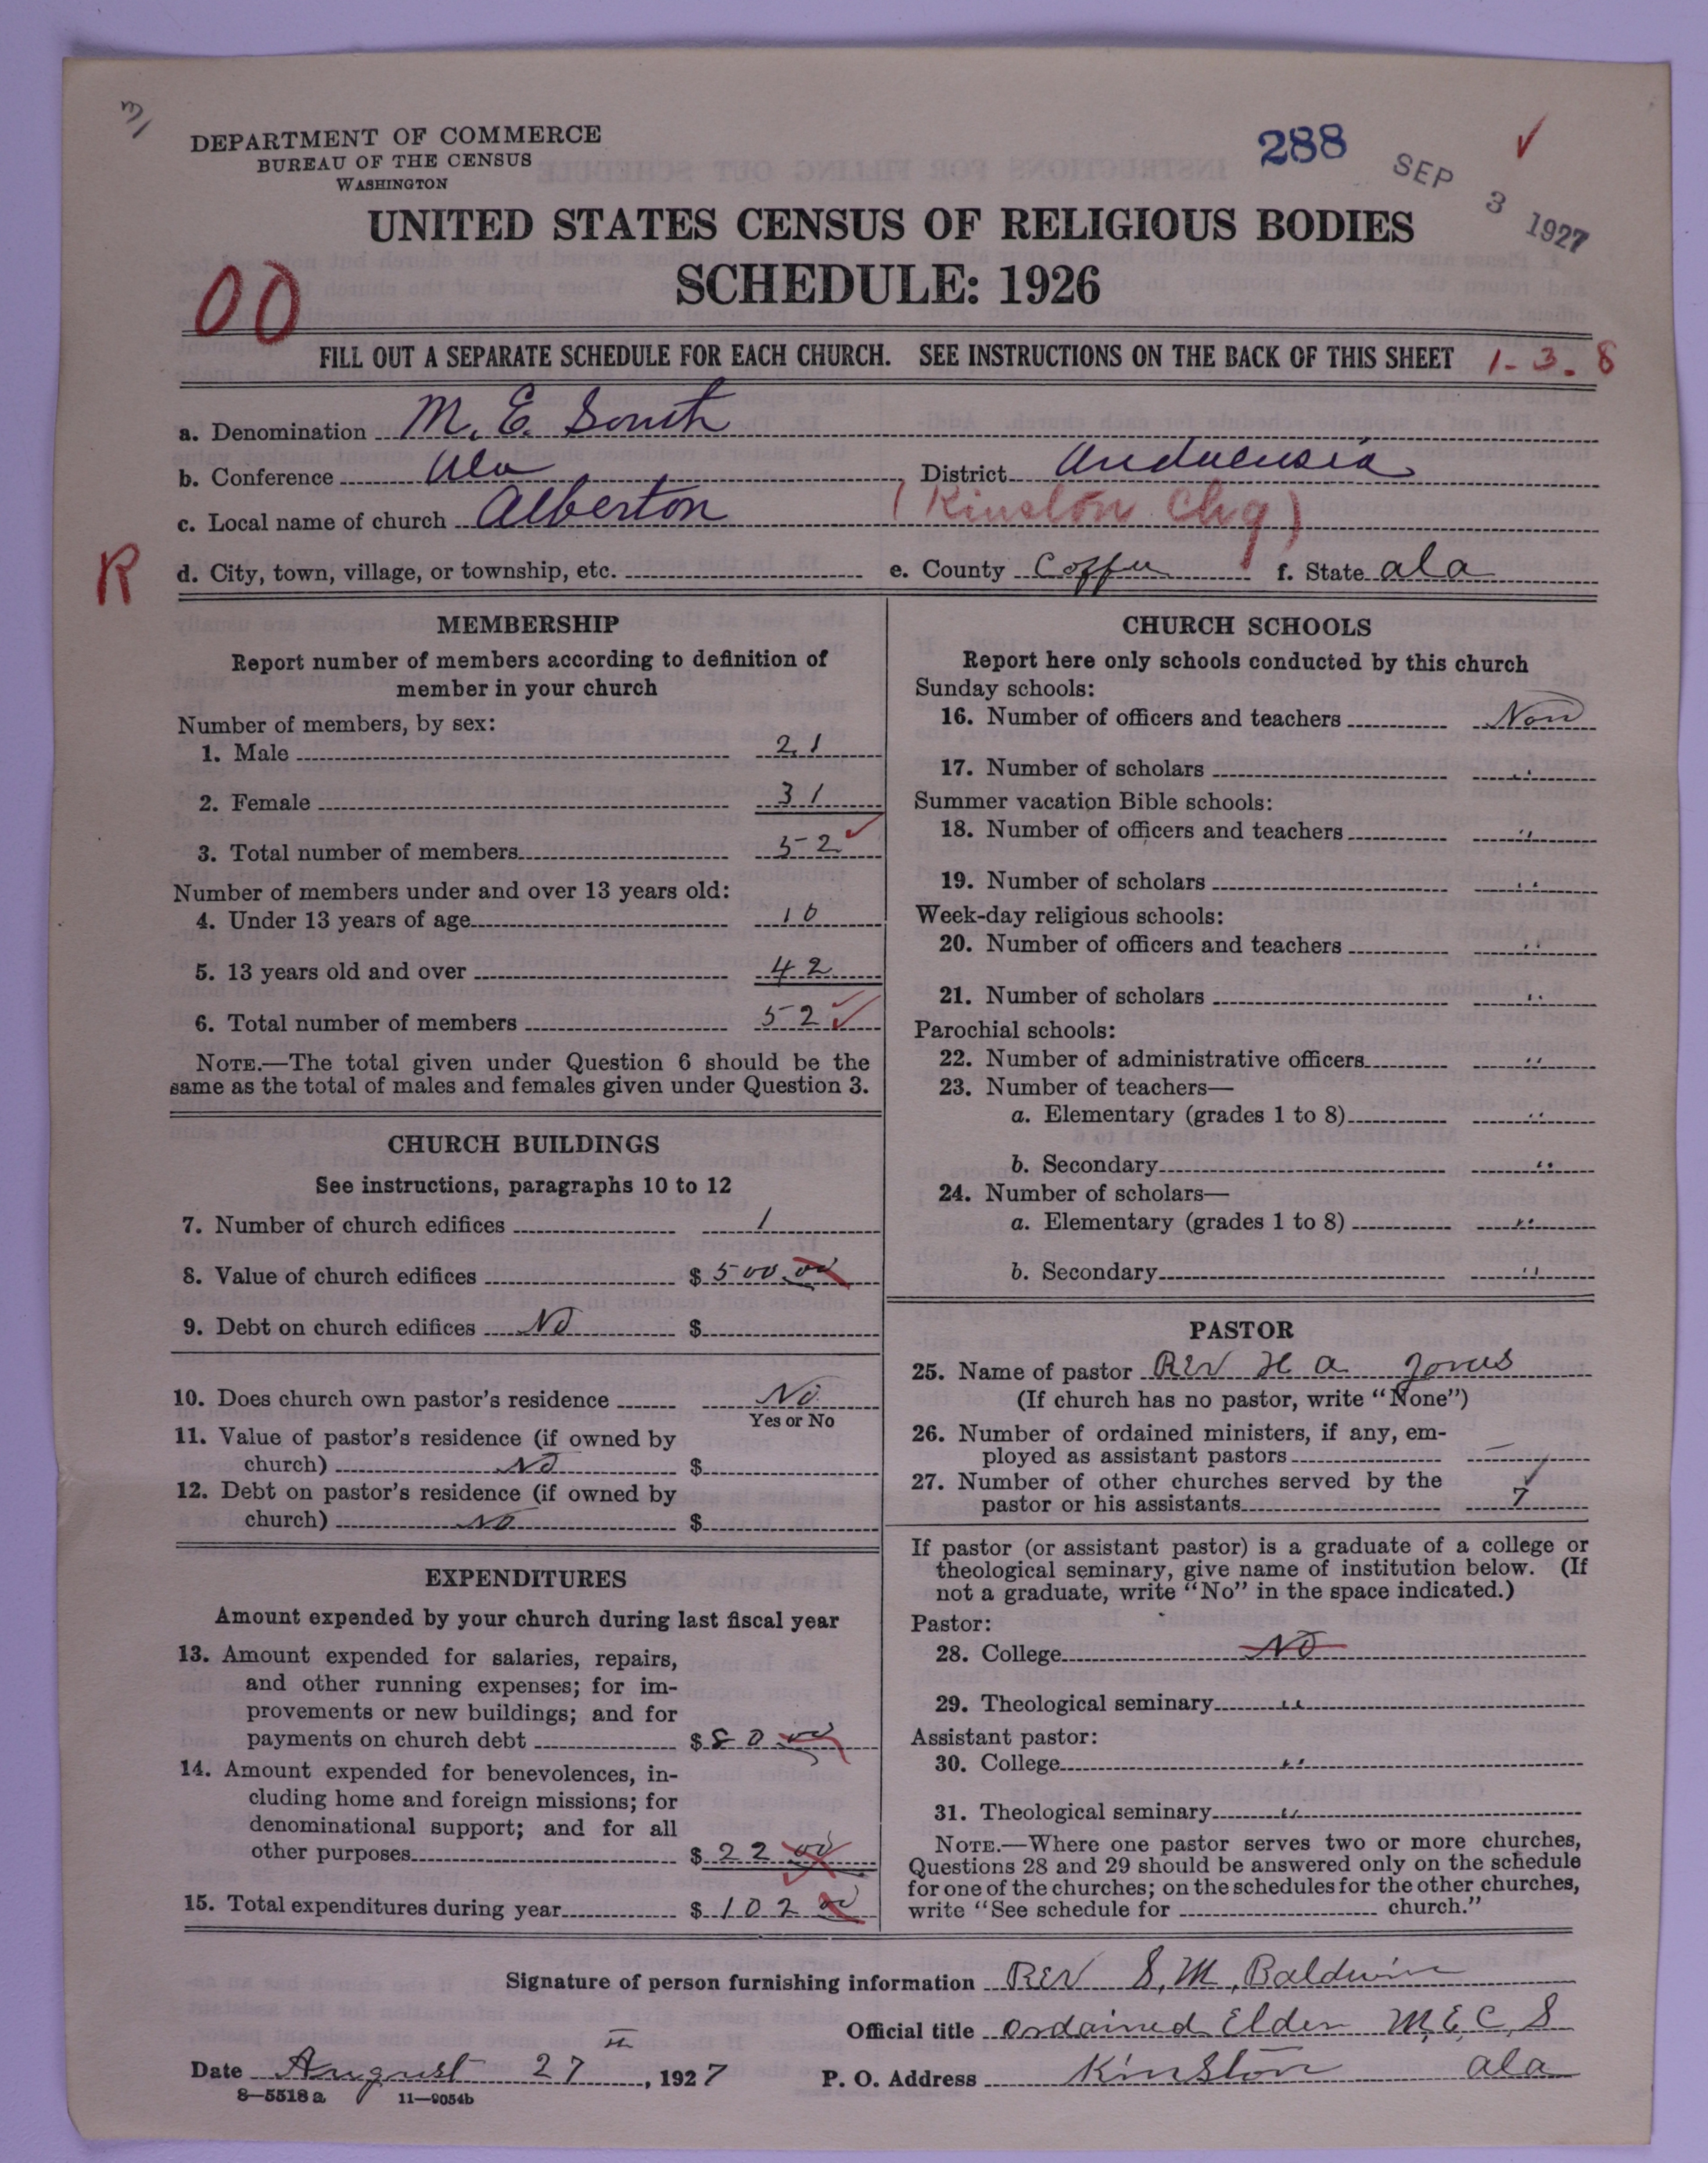 DEPARTMENT OF COMMERCE
BUREAU OF THE CENSUS
WASHINGTON
288
SEP 3 1927
UNITED STATES CENSUS OF RELIGIOUS BODIES
SCHEDULE: 1926
00
FILL OUT A SEPARATE SCHEDULE FOR EACH CHURCH. SEE INSTRUCTIONS ON THE BACK OF THIS SHEET 1-3.8
a. Denomination M. E. South
b. Conference Ala District Andalusia
c. Local name of church Alberton (Kinston Chg)
R
d. City, town, village, or township, etc. e. County Coffee f. State ala
MEMBERSHIP
Report number of members according to definition of
member in your church
Number of members, by sex:
1. Male 21
2. Female 31
3. Total number of members 52
Number of members under and over 13 years old:
4. Under 13 years of age 10
5. 13 years old and over 42
6. Total number of members 52
NOTE.—The total given under Question 6 should be the
same as the total of males and females given under Question 3.
CHURCH BUILDINGS
See instructions, paragraphs 10 to 12
7. Number of church edifices 1
8. Value of church edifices $ 500 00
9. Debt on church edifices No $
10. Does church own pastor's residence No
Yes or No
11. Value of pastor's residence (if owned by
church) No $
12. Debt on pastor's residence (if owned by
church) No $
EXPENDITURES
Amount expended by your church during last fiscal year
13. Amount expended for salaries, repairs,
and other running expenses; for im-
provements or new buildings; and for
payments on church debt $ 80 00
14. Amount expended for benevolences, in-
cluding home and foreign missions; for
denominational support; and for all
other purposes $ 22 00
15. Total expenditures during year $ 102 00
CHURCH SCHOOLS
Report here only schools conducted by this church
Sunday schools:
16. Number of officers and teachers Non
17. Number of scholars "
Summer vacation Bible schools:
18. Number of officers and teachers "
19. Number of scholars "
Week-day religious schools:
20. Number of officers and teachers "
21. Number of scholars "
Parochial schools:
22. Number of administrative officers "
23. Number of teachers—
a. Elementary (grades 1 to 8) "
b. Secondary "
24. Number of scholars—
a. Elementary (grades 1 to 8) "
b. Secondary "
PASTOR
25. Name of pastor Rev H a Jones
(If church has no pastor, write "None")
26. Number of ordained ministers, if any, em-
ployed as assistant pastors —
27. Number of other churches served by the
pastor or his assistants 7
If pastor (or assistant pastor) is a graduate of a college or
theological seminary, give name of institution below. (If
not a graduate, write "No" in the space indicated.)
Pastor:
28. College No
29. Theological seminary "
Assistant pastor:
30. College "
31. Theological seminary "
NOTE.—Where one pastor serves two or more churches,
Questions 28 and 29 should be answered only on the schedule
for one of the churches; on the schedules for the other churches,
write "See schedule for church."
Signature of person furnishing information Rev S. M. Baldwin
Official title Ordained Elder M. E. C. S
Date August 27 th, 1927 P. O. Address Kinston ala
8—5518 a 11—9054b